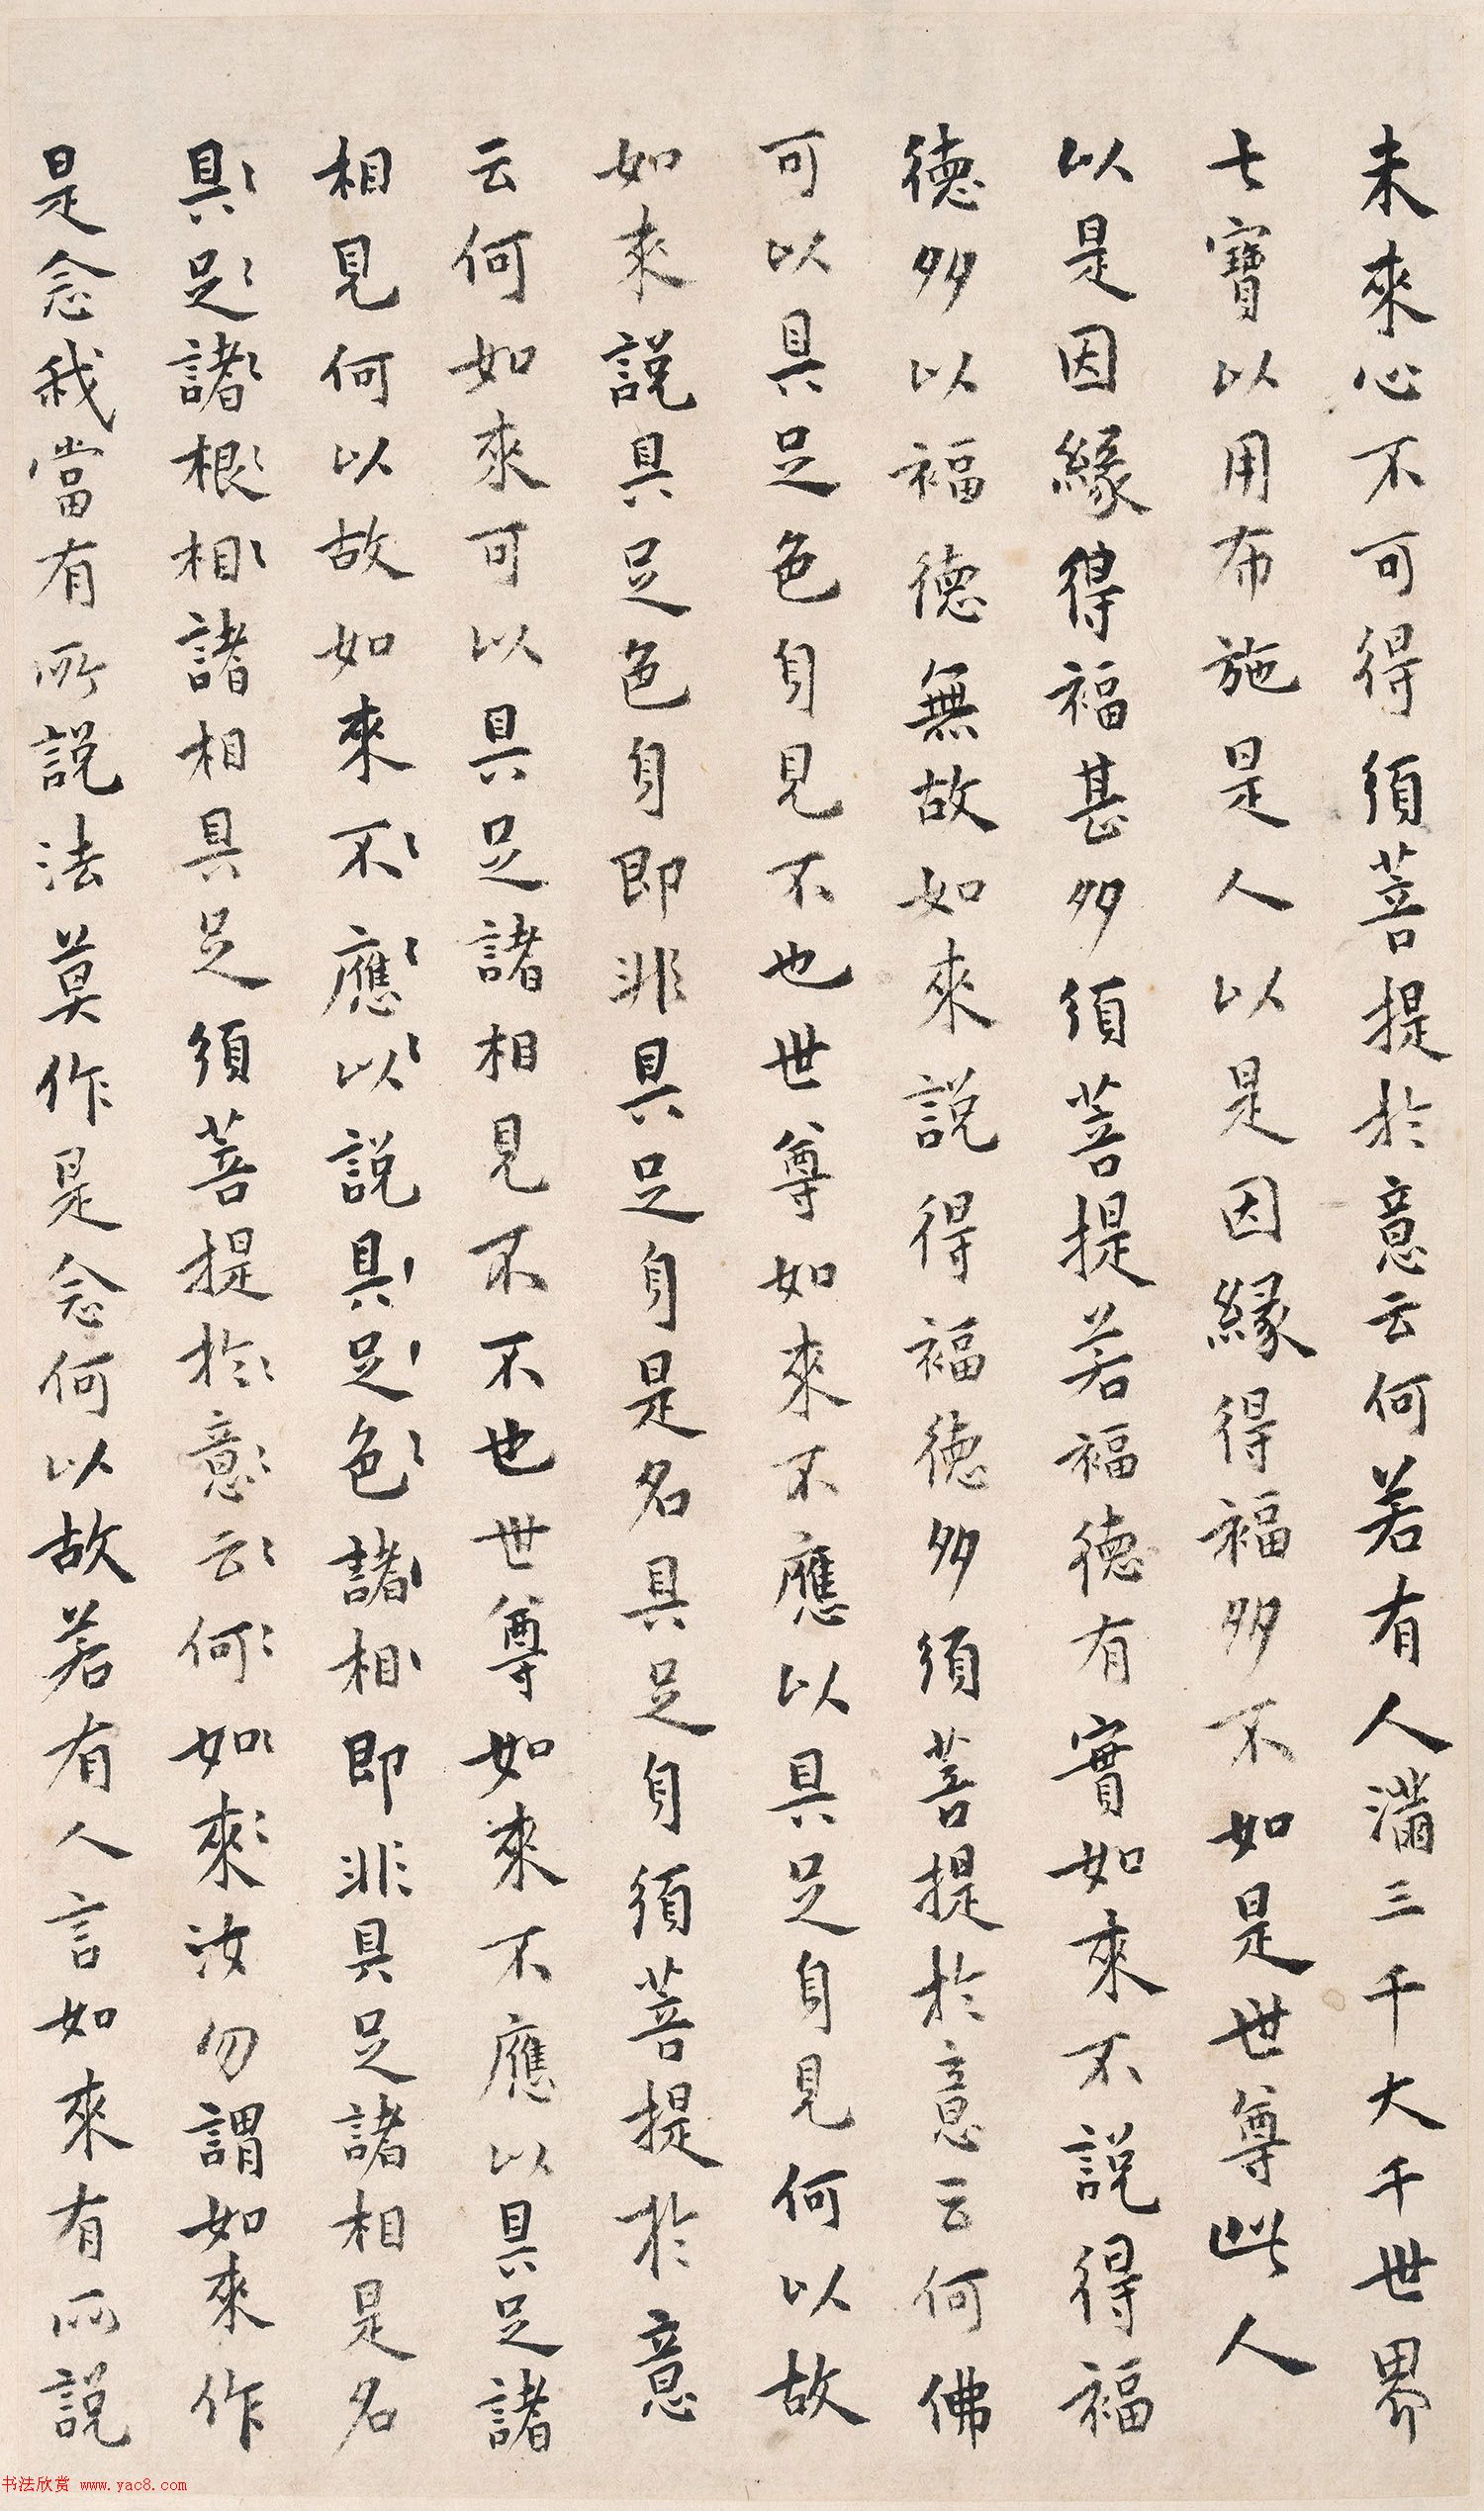 未來心不可得須菩提於意云何若有人滿三千大千世界
七寶以用布施是人以是因緣得福多不如是世尊此人
以是因緣得福甚多須菩提若福德有實如來不說得福
德多以福德無故如來說得福德多須菩提於意云何佛
可以具足色身見不也世尊如來不應以具足身見何以故
如來說具足色身即非具足身是名具足身須菩提於意
云何如來可以具足諸相見不不也世尊如來不應以具足諸
相見何以故如來不應以說具足色諸相即非具足諸相是名
具足諸根相諸相具足須菩提於意云何如來汝勿謂如來作
是念我當有所說法莫作是念何以故若有人言如來有所說
书法欣赏 www.yac8.com